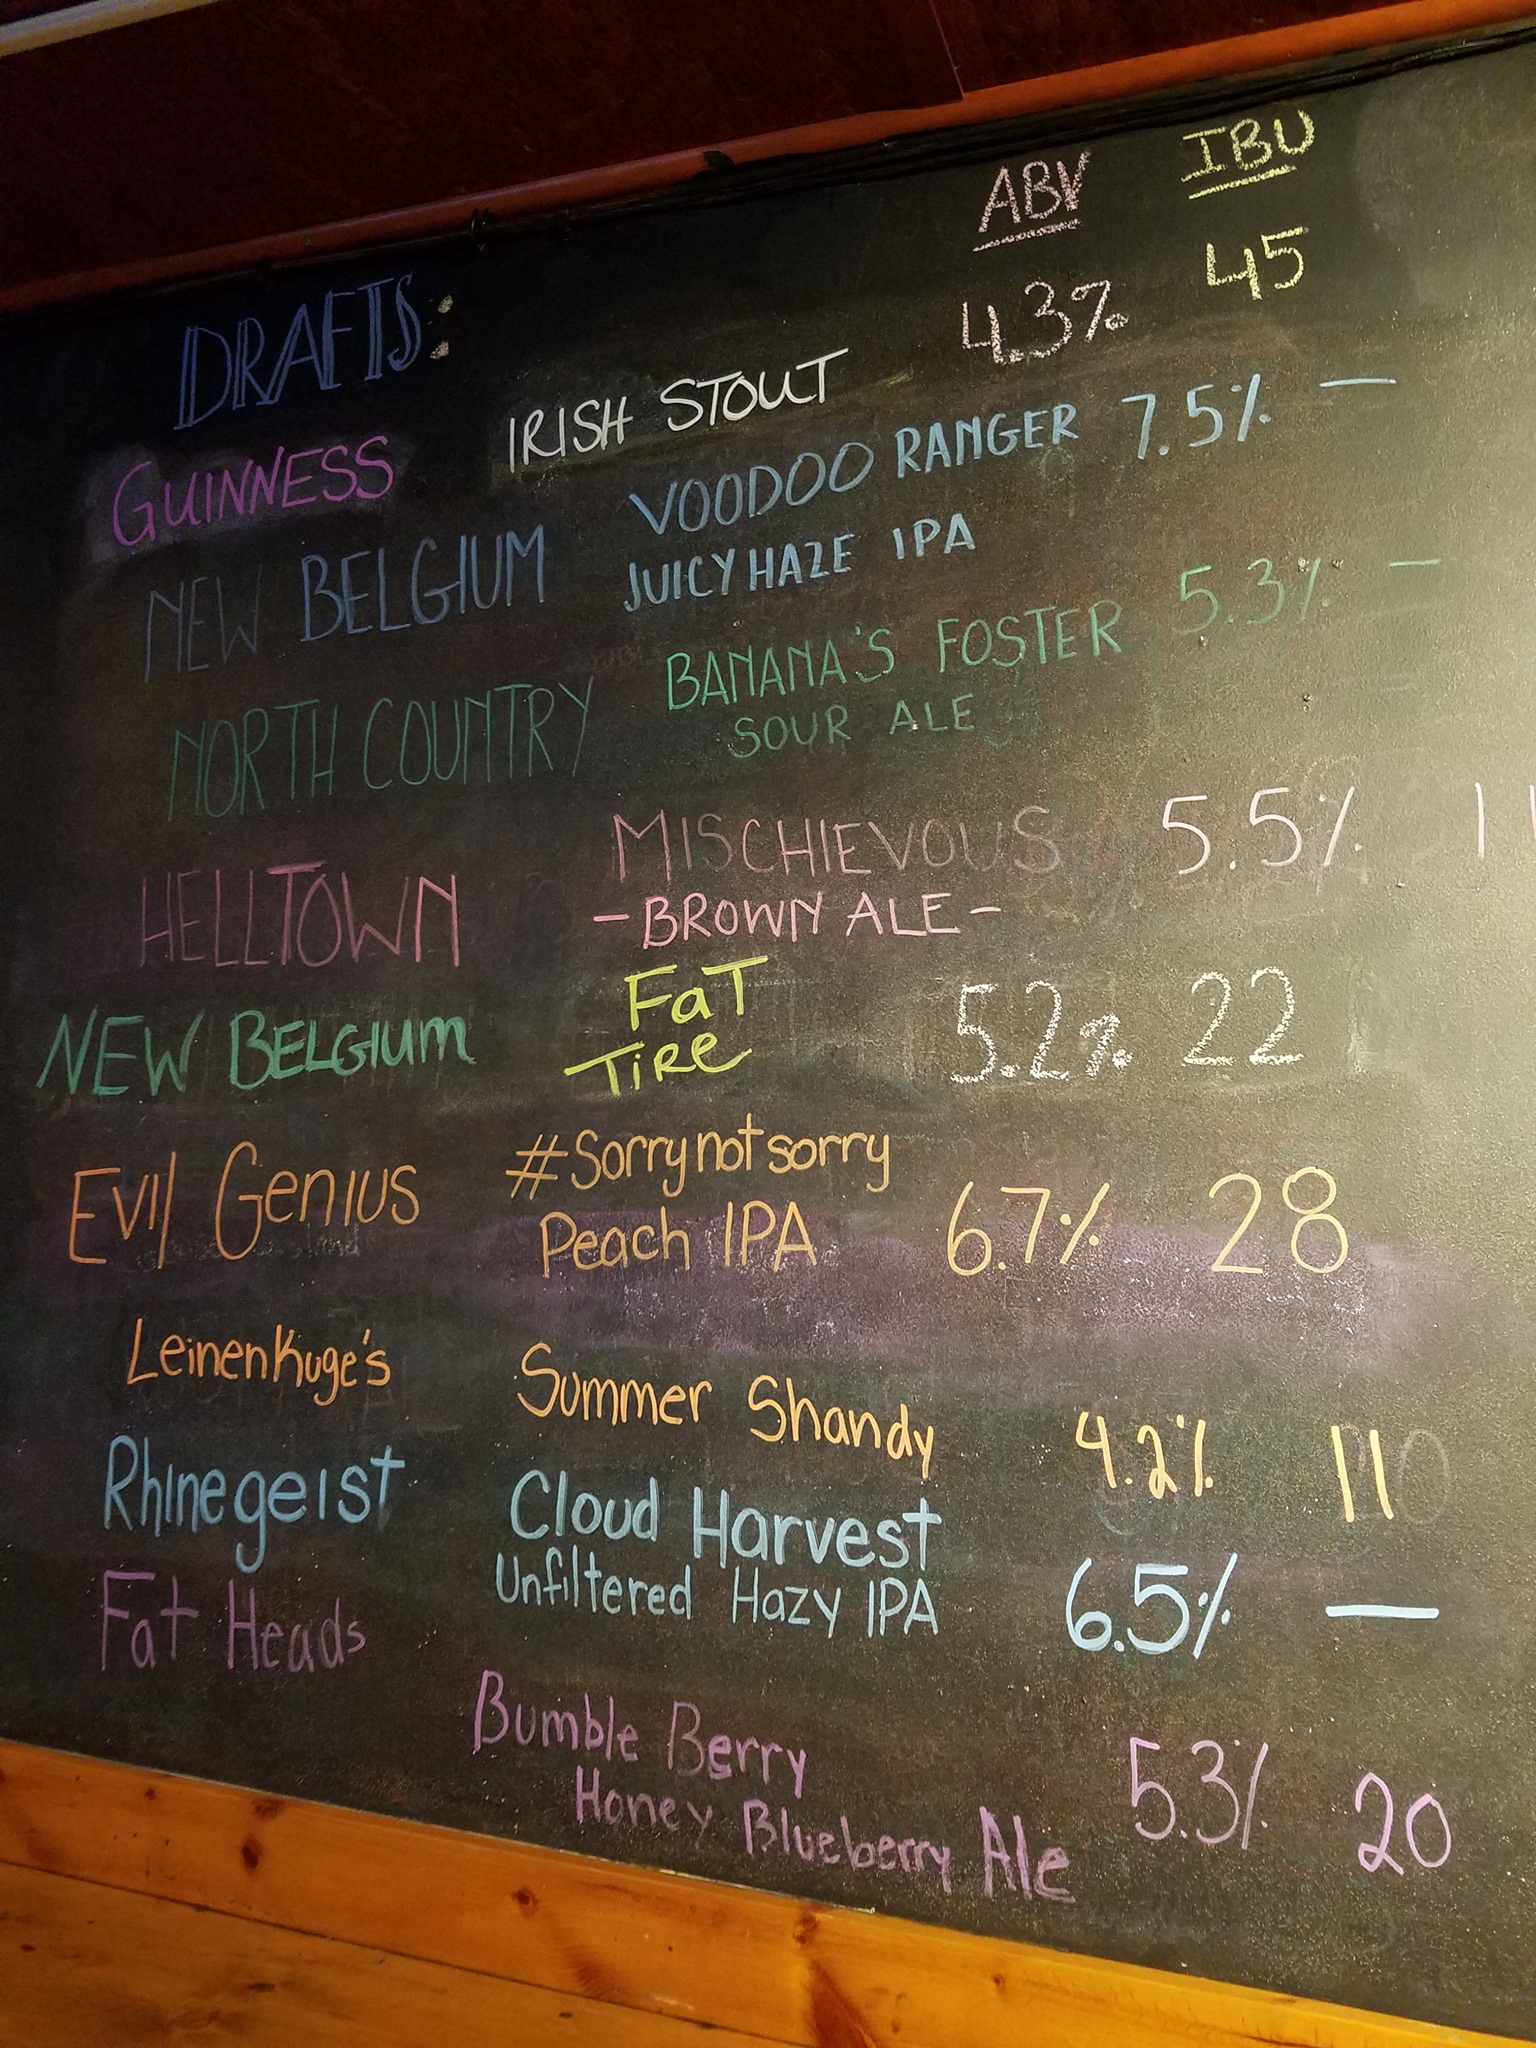 ABV IBU
DRAFTS:
GUINNESS IRISH STOUT 4.3% 45
NEW BELGIUM VOODOO RANGER 7.5% —
JUICY HAZE IPA
NORTH COUNTRY BANANA'S FOSTER 5.3% —
SOUR ALE
HELLTOWN MISCHIEVOUS 5.5%
- BROWN ALE -
NEW BELGIUM FAT
TIRE 5.2% 22
Evil Genius #Sorrynotsorry
Peach IPA 6.7% 28
Leinenkuge's Summer Shandy 4.2% 11
Rhinegeist Cloud Harvest
Unfiltered Hazy IPA 6.5% —
Fat Heads
Bumble Berry 5.3% 20
Honey Blueberry Ale